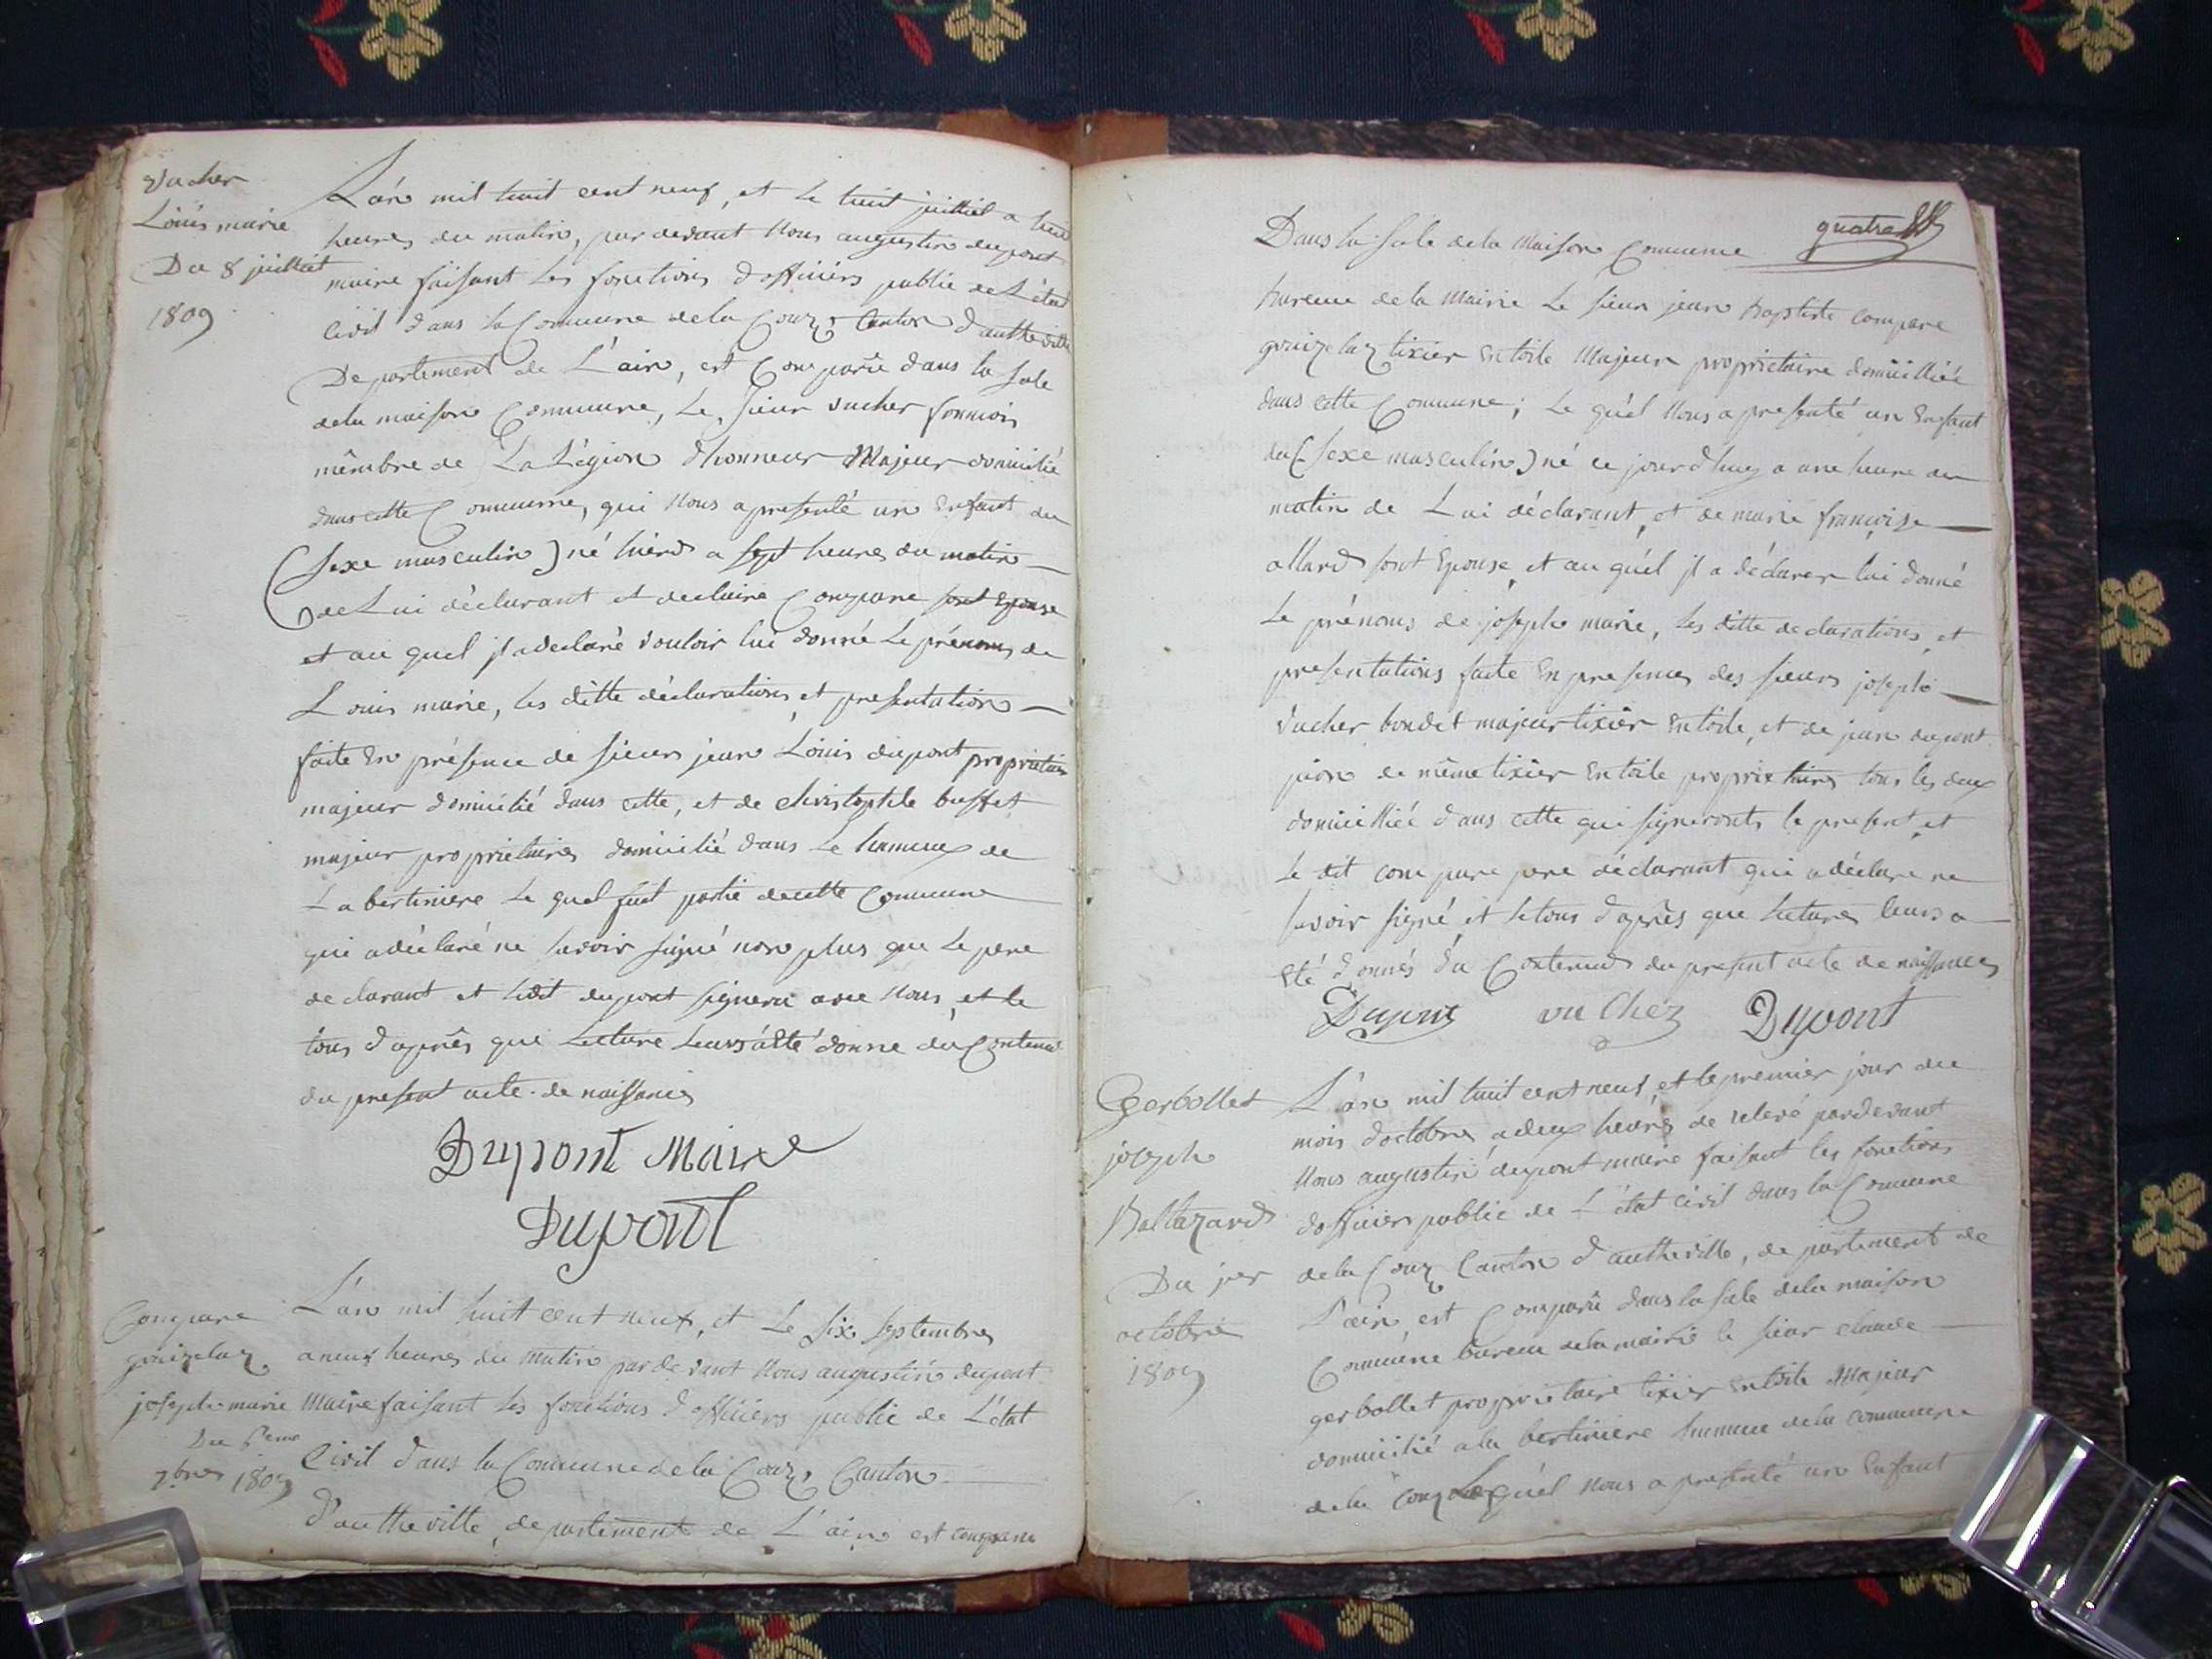 Vucher
Louis marie
Du 8 juilliet
1809
L'an mil huit cent neuf, et le huit juilliet a huit
heures du matin, par devant nous augustin dupont
maire faisant les fonctions d'officiers public de L'état
Civil dans la Commune de la Couz, Canton d'autheville
Departement de L'ain, est Comparû dans la sale
dela maison Commune, Le, sieur vucher
mêmbre de La Légion dhonneur Majeur domicilié
dans cette Commune, qui nous a presenté un Enfant du
(Sexe masculin) né hierd a sept heures du matin
de Lui déclarant et declaire Compare sont Epouse
et au quel jl a declaré vouloir lui donné Le prénoms de
Louis marie, les ditte déclarations et presentation
faite En présence de sieurs jean Louis dupont proprietaire
majeur domicilié dans cette, et de christophle buffet
majeur proprietaires domicilié dans Le hameux de
La bertiniere Le quel fait partie decette Commune
qui a déclaré ne savoir signé non plus que Le pere
declarant et ledit dupont signera avec nous, et le
tous d'après que Lecture Leurs a été donné du Contenud
du present acte de naissances
Dupont Maire
Dupont
Compare
gouizelaz
joseph marie
Du 6eme
7bres 1809
L'an mil huit cent neuf, et Le six septembres
a neuf heures du matin par devant nous augustin dupont
Maire faisant les fonctions d'officiers public de L'état
Civil dans la Commune de la Couz, Canton
d'autheville, departement de L'ain est comparu
quatre
Dans la sale de la Maison Commune
bureau de la Mairie Le sieur jean baptiste compare
gouizelaz tixier En toile Majeur proprietaire domicilliée
dans cette Commune; Le quél nous a presenté un Enfant
du (Sexe masculin) né ce jourd'huy a une heure du
matin de Lui déclarant, et de marie françoise
allard sont Epouse, et au quél jl a déclarer lui donné
Le prénoms de joseph marie, les ditte declarations, et
presentations faite En presences des sieurs joseph
vucher boudet majeur tixier En toile, et de jean dupont
pion de même tixier En toile proprietaires tous les deux
domicilliée dans cette qui signeronts le present, et
Le dit compare pere déclarant qui a déclare ne
savoir signé, et le tous d'après que lectures leurs a
Eté donnés du Contenud du present acte de naissances
Dupont vuchez Dupont
Gerbollet
joseph
Baltazard
Du jer
octobre
1809
L'an mil huit cent neuf, et le premier jour du
mois d'octobre, a deux heures de relevé pardevant
Nous augustin dupont maire faisant les fonctions
d'officier public de L'état Civil dans la Commune
dela Couz Canton d'autheville, departement de
L'ain, est Comparû dans la sale dela maison
Commune bureau dela mairie le sieur claude
gerbollet proprietaire tixier En toile Majeur
domicilié a la bertiniere hameau dela commune
dela Couz Lequél nous a presenté un Enfant